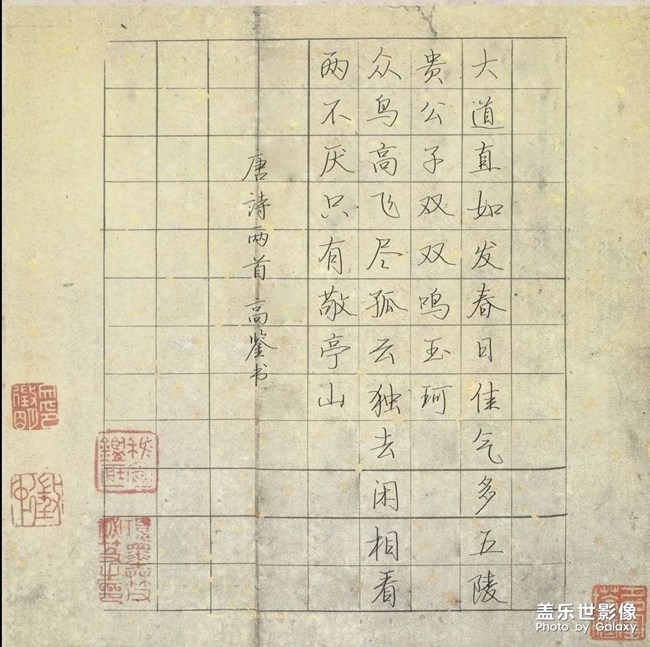 大道直如发春日佳气多五陵
贵公子双双鸣玉珂
众鸟高飞尽孤云独去闲相看
两不厌只有敬亭山
唐诗两首 高鉴书
盖乐世影像
Photo by Galaxy